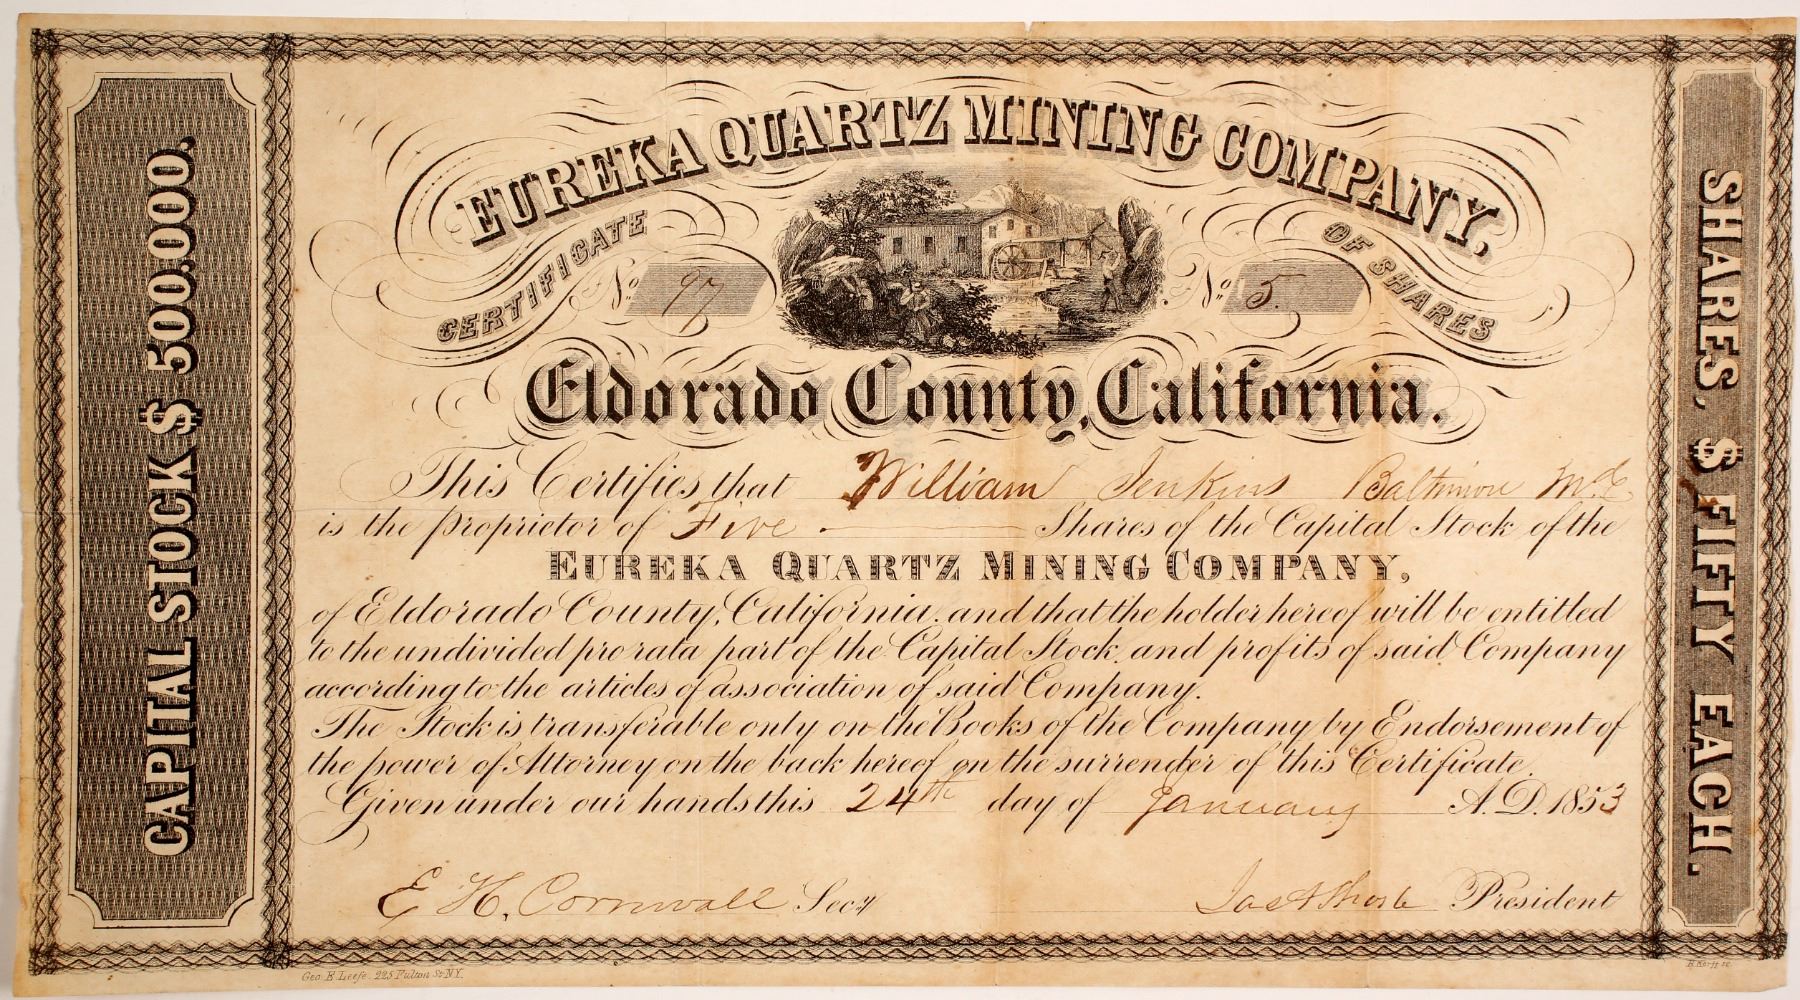 EUREKA QUARTZ MINING COMPANY,
CERTIFICATE OF SHARES
No. 97
No. 5.
Eldorado County, California.
This Certifies that William Jenkins Baltimore Md.
is the proprietor of Five Shares of the Capital Stock of the
EUREKA QUARTZ MINING COMPANY,
of Eldorado County, California. and that the holder hereof will be entitled
to the undivided pro rata part of the Capital Stock. and profits of said Company
according to the articles of association of said Company.
The Stock is transferable only on the Books of the Company by Endorsement of
the power of Attorney on the back hereof on the surrender of this Certificate.
Given under our hands this 24th day of January A.D. 1853
E. H. Cornwall Secy
President
CAPITAL STOCK $ 500.000.
SHARES, $ FIFTY EACH.
Geo. E. Leefe. 225 Fulton St. N.Y.